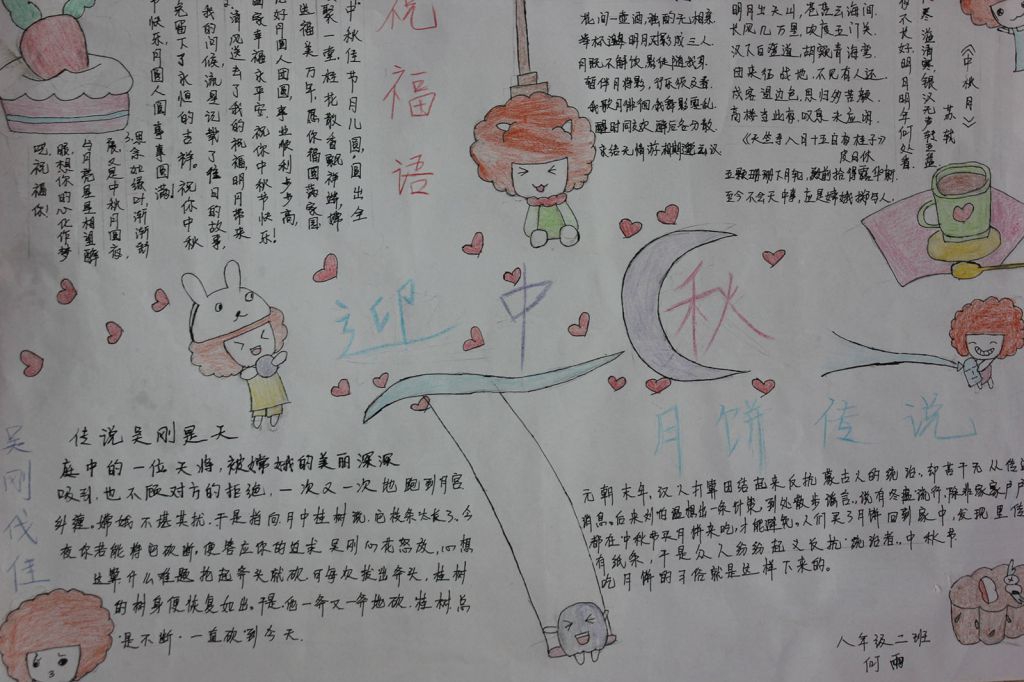 祝福语
中秋佳节月儿圆,圆出全
聚一堂,桂花散香飘
福美万年,愿你福圆
好月圆人团圆,事业顺利步步高,
家幸福永平安,祝你中秋节快乐!
清风送去了我的祝福,明月带来
我的问候,流星记载了佳日的故事,
留下了永恒的吉祥。祝你中秋
快乐,月圆人圆事事圆满!
夜又是中秋月圆夜,
与月亮星星相望
想你的心化作梦
祝福你!
花间一壶酒,独酌无相亲
举杯邀明月,对影成三人
月既不解饮,影徒随我身
暂伴月将影,行乐须及春
我歌月徘徊,我舞影零乱
醒时同交欢,醉后各分散
永结无情游,相期邈云汉
明月出天山,苍茫云海间.
长风几万里,吹度玉门关.
汉下白登道,胡窥青海湾
由来征战地,不见有人还
戍客望边色,思归多苦颜.
高楼当此夜,叹息未应闲.
《天竺寺八月十五日夜桂子》
皮日休
玉颗珊珊下月轮,殿前拾得露华新.
至今不会天中事,应是嫦娥掷与人.
《中秋月》
苏轼
寒银汉无声转玉盘
不长好明月明年何处看.
迎中秋
吴刚伐佳
传说吴刚是天
庭中的一位天将,被嫦娥的美丽深深
吸引,也不顾对方的拒绝,一次又一次地跑到月宫
纠缠。嫦娥不堪其扰,于是指向月中桂树说:它枝条太长了,今
夜你若能将它砍断,便答应你的追求.吴刚心花怒放,心想
这算什么难题.抡起斧头就砍.可每次拔出斧头,桂树
的树身便恢复如出。于是.他一斧又一斧地砍.桂树总
是不断.一直砍到今天.
月饼传说
元朝末年,汉人打算团结起来反抗蒙古人的统治,却苦于无从传
消息。后来刘伯温想出一条计策,到处散步谣言,说有冬瘟流行,除非家家户户
都在中秋节买月饼来吃,才能避免。人们买了月饼回到家中,发现里
有纸条,于是众人纷纷起义反抗统治者。中秋节
吃月饼的习俗就是这样下来的。
八年级二班
何雨